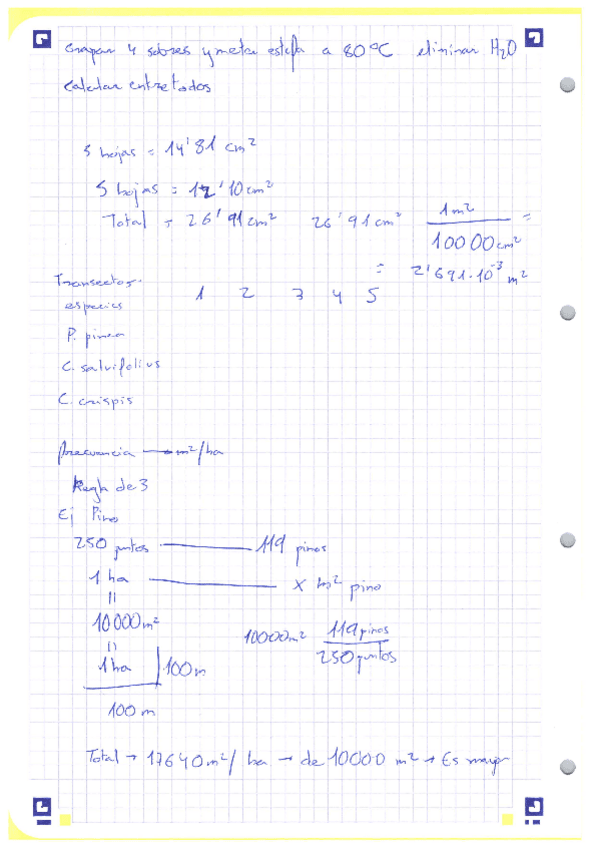 Grapar 4 sobres y meter estufa a 80ºC eliminar H2O
Calcular entre todos
5 hojas = 14'81 cm²
5 hojas = 12'10 cm²
Total = 26'91 cm² 26'91 cm² 1 m² / 10000 cm² =
= 2'691·10⁻³ m²
Transectos.
especies 1 2 3 4 5
P. pinea
C. salvifolius
C. crispis
frecuencia → m²/ha
Regla de 3
Ej Pino
250 puntos —— 119 pinos
1 ha —— x m² pino
||
10000 m² 10000 m² 119 pinos / 250 puntos
||
1 ha 100 m
100 m
Total → 17640 m²/ha → de 10000 m² → Es mayor